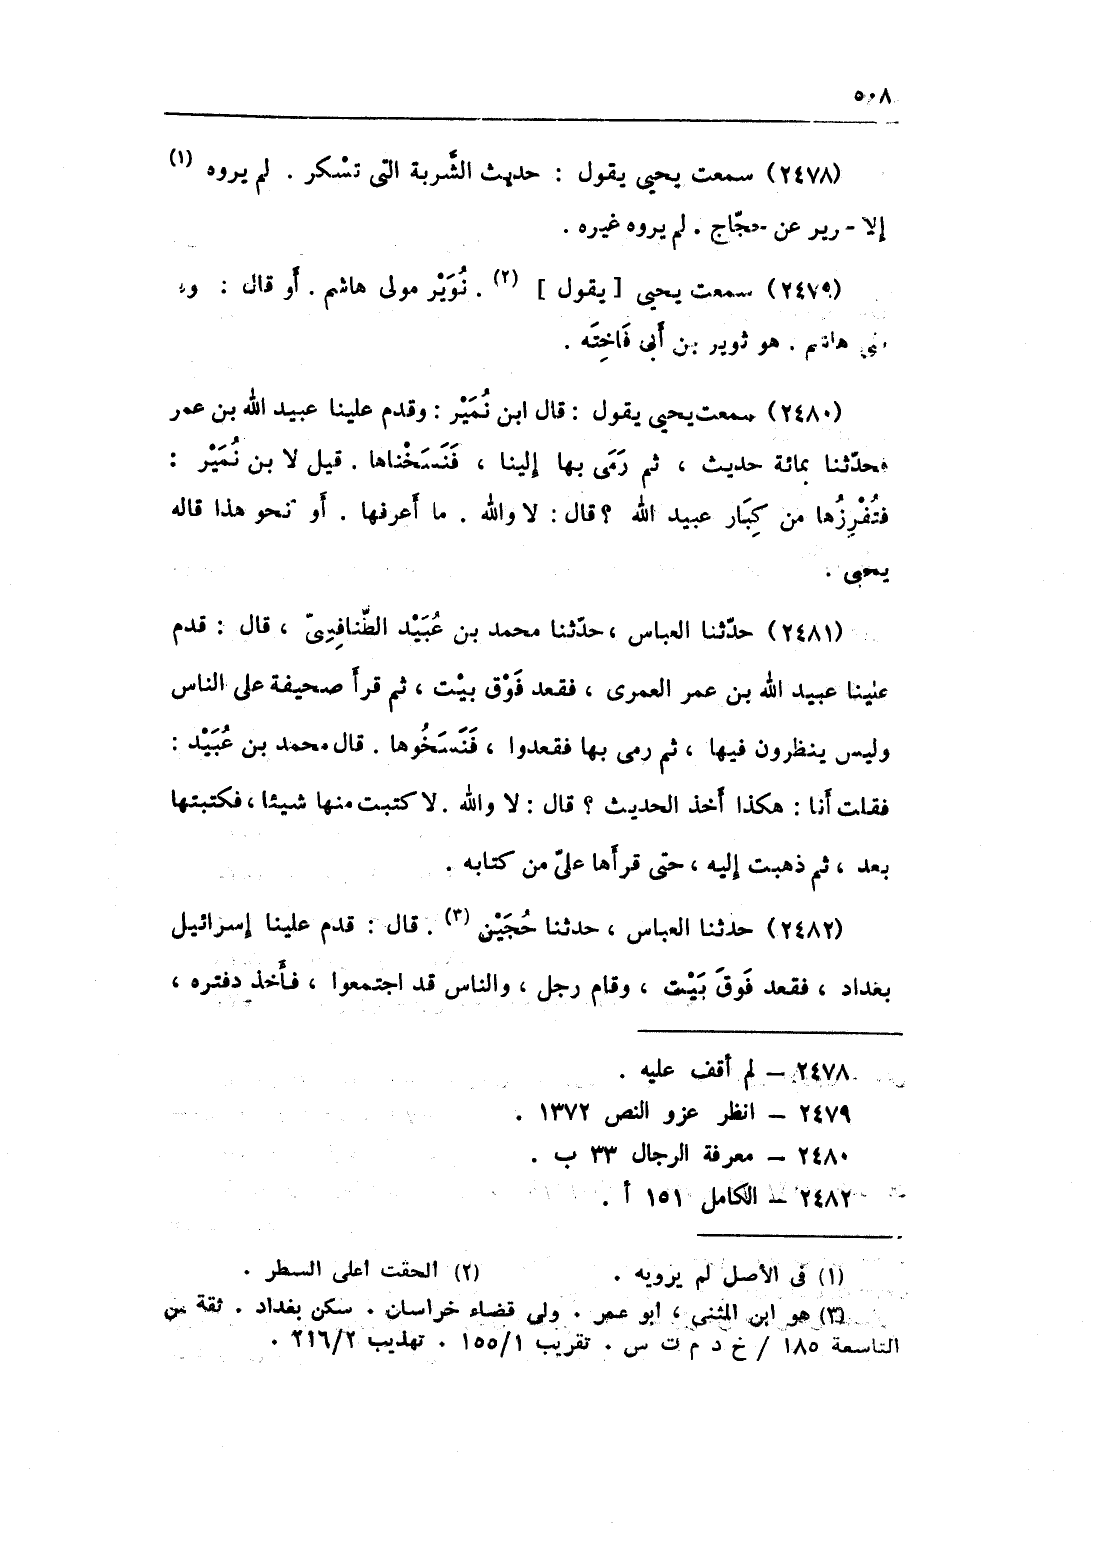 ٥٠٨
(٢٤٧٨) سمعت يحيى يقول : حديث الشَّربة التى تسْكر . لم يروه (١)
إلا جرير عن حجّاج . لم يروه غيره .
(٢٤٧٩) سمعت يحيى [ يقول ] (٢) . ثُوَيْر مولى هاشم . أَو قال :
بنى هاشم . هو ثوير بن أَبى فَاخِتَه .
(٢٤٨٠) سمعت يحيى يقول : قال ابن نُمَيْر : وقدم علينا عبيد الله بن عمر
فحدّثنا بمائة حديث ، ثم رَمَى بها إلينا ، فَنَسَخْناها . قيل لا بن نُمَيْر :
فتُفْرِزُها من كِبَار عبيد الله ؟ قال : لا والله . ما أَعرفها . أَو نحو هذا قاله
يحيى .
(٢٤٨١) حدّثنا العباس ، حدّثنا محمد بن عُبَيْد الطَّنافِسِىّ ، قال : قدم
علينا عبيد الله بن عمر العمرى ، فقعد فَوْق بيْت ، ثم قرأَ صحيفة على الناس
وليس ينظرون فيها ، ثم رمى بها فقعدوا ، فَنَسَخُوها . قال محمد بن عُبَيْد :
فقلت أَنا : هكذا أَخذ الحديث ؟ قال : لا والله . لا كتبت منها شيئا ، فكتبتها
بعد ، ثم ذهبت إليه ، حتى قرأَها علىّ من كتابه .
(٢٤٨٢) حدثنا العباس ، حدثنا حُجَيْن (٣) . قال : قدم علينا إسرائيل
بغداد ، فقعد فَوقَ بَيْت ، وقام رجل ، والناس قد اجتمعوا ، فأَخذ دفتره ،
٢٤٧٨ – لم أقف عليه .
٢٤٧٩ – انظر عزو النص ١٣٧٢ .
٢٤٨٠ – معرفة الرجال ٣٣ ب .
٢٤٨٢ – الكامل ١٥١ أ .
(١) فى الأصل لم يرويه . (٢) الحقت اعلى السطر .
(٣) هو ابن المثنى ، ابو عمر . ولى قضاء خراسان . سكن بغداد . ثقة من
التاسعة ١٨٥ / خ د م ت س . تقريب ١٥٥/١ . تهذيب ٢١٦/٢ .